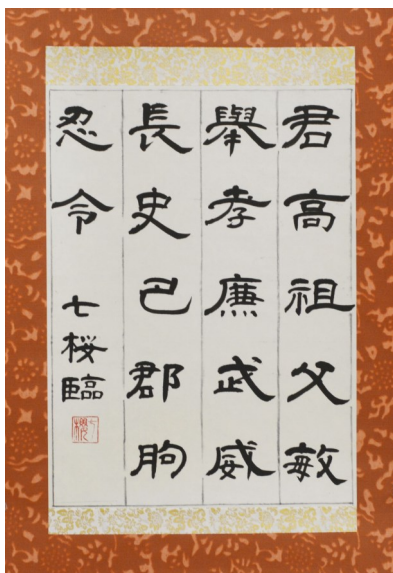 君高祖父敏
舉孝廉武威
長史巴郡朐
忍令
七桜臨